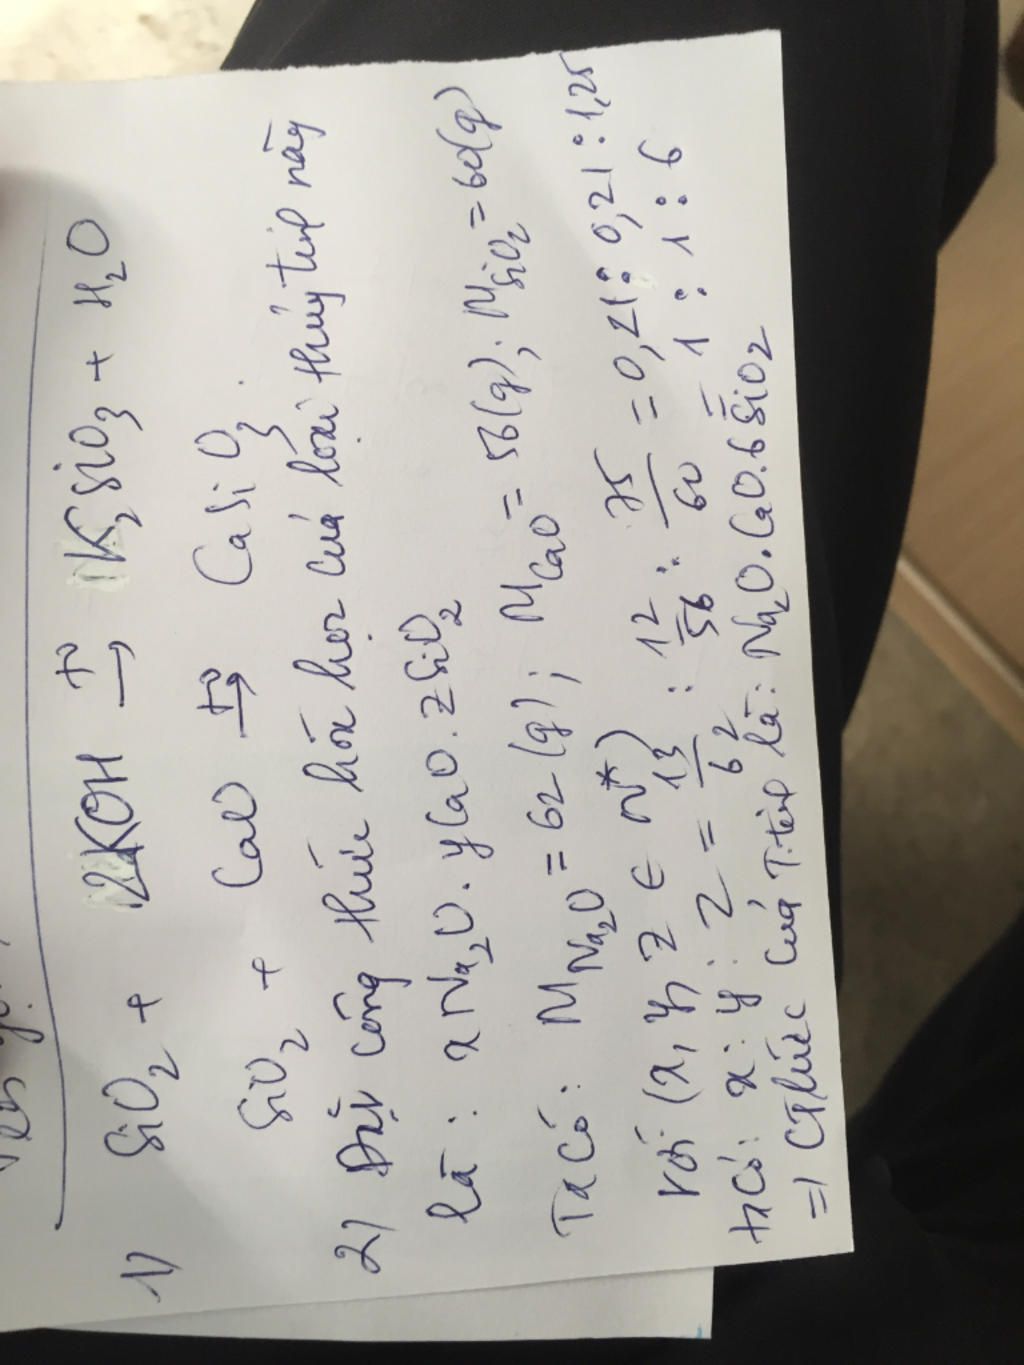 1) SiO2 + 2KOH t° → K2SiO3 + H2O
SiO2 + CaO t° → CaSiO3
2) Đặt công thức hóa học của loại thủy tinh này
là: xNa2O.yCaO.zSiO2
Ta có: MNa2O = 62(g); MCaO = 56(g); MSiO2 = 60(g)
với (x, y, z ∈ N*)
tacó: x : y : z = 13/62 : 12/56 : 75/60 = 0,21 : 0,21 : 1,25
= 1 : 1 : 6
=) CThức của T.tinh là: Na2O.CaO.6SiO2